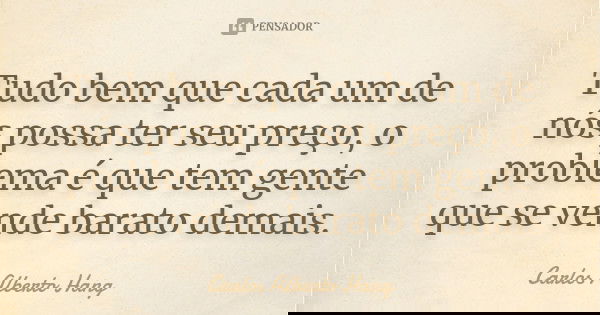 PENSADOR
Tudo bem que cada um de
nós possa ter seu preço, o
problema é que tem gente
que se vende barato demais.
Carlos Alberto Hang